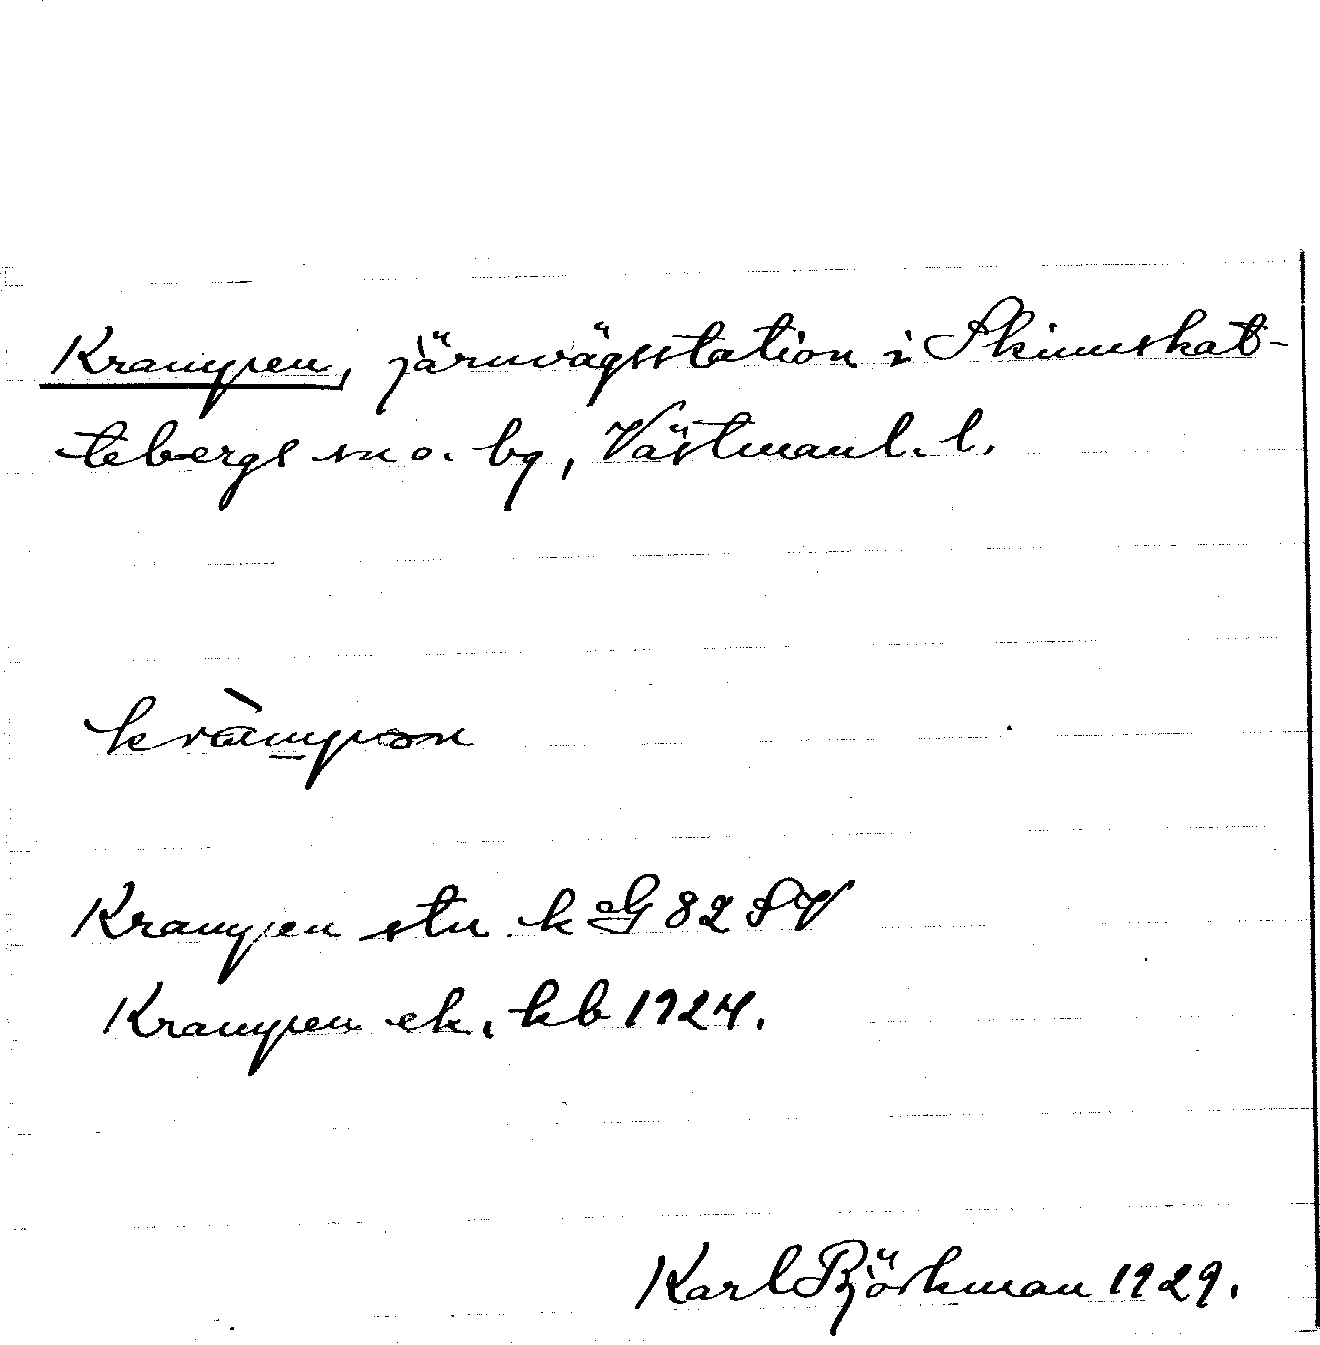 Krampen, järnvägsstation i Skinnskat-
tebergs sn o. bg, Västmanl. l.
kràmpən
Krampen stn k G 82 SV
Krampen ek. kb 1924.
Karl Björkman 1929.